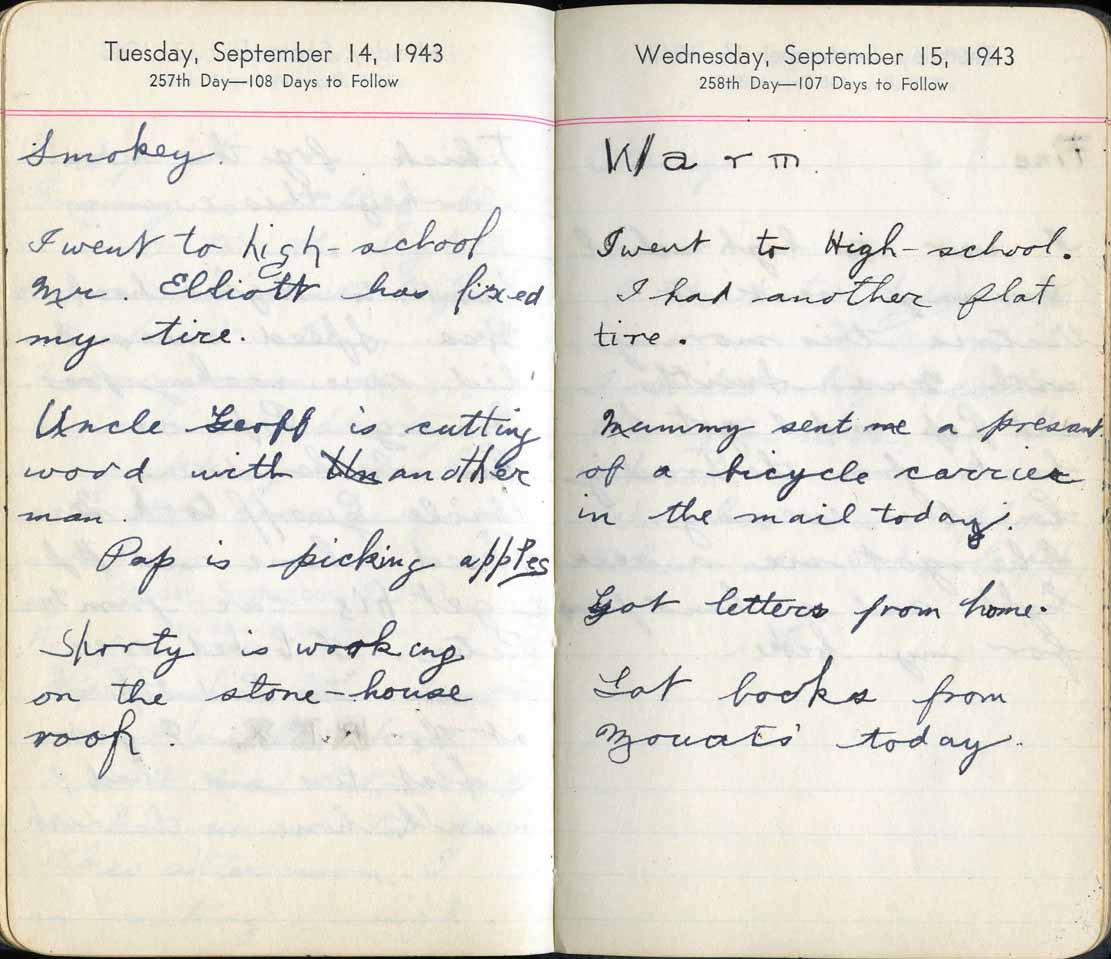 Tuesday, September 14, 1943
257th Day—108 Days to Follow
Smokey
I went to high-school
Mr. Elliott has fixed
my tire.
Uncle Geoff is cutting
wood with Un another
man.
Pap is picking apples
Shorty is working
on the stone-house
roof.
Wednesday, September 15, 1943
258th Day—107 Days to Follow
Warm.
I went to High-school.
I had another flat
tire.
Mummy sent me a presant
of a bicycle carrier
in the mail today.
Got letters from home.
Got books from
today.